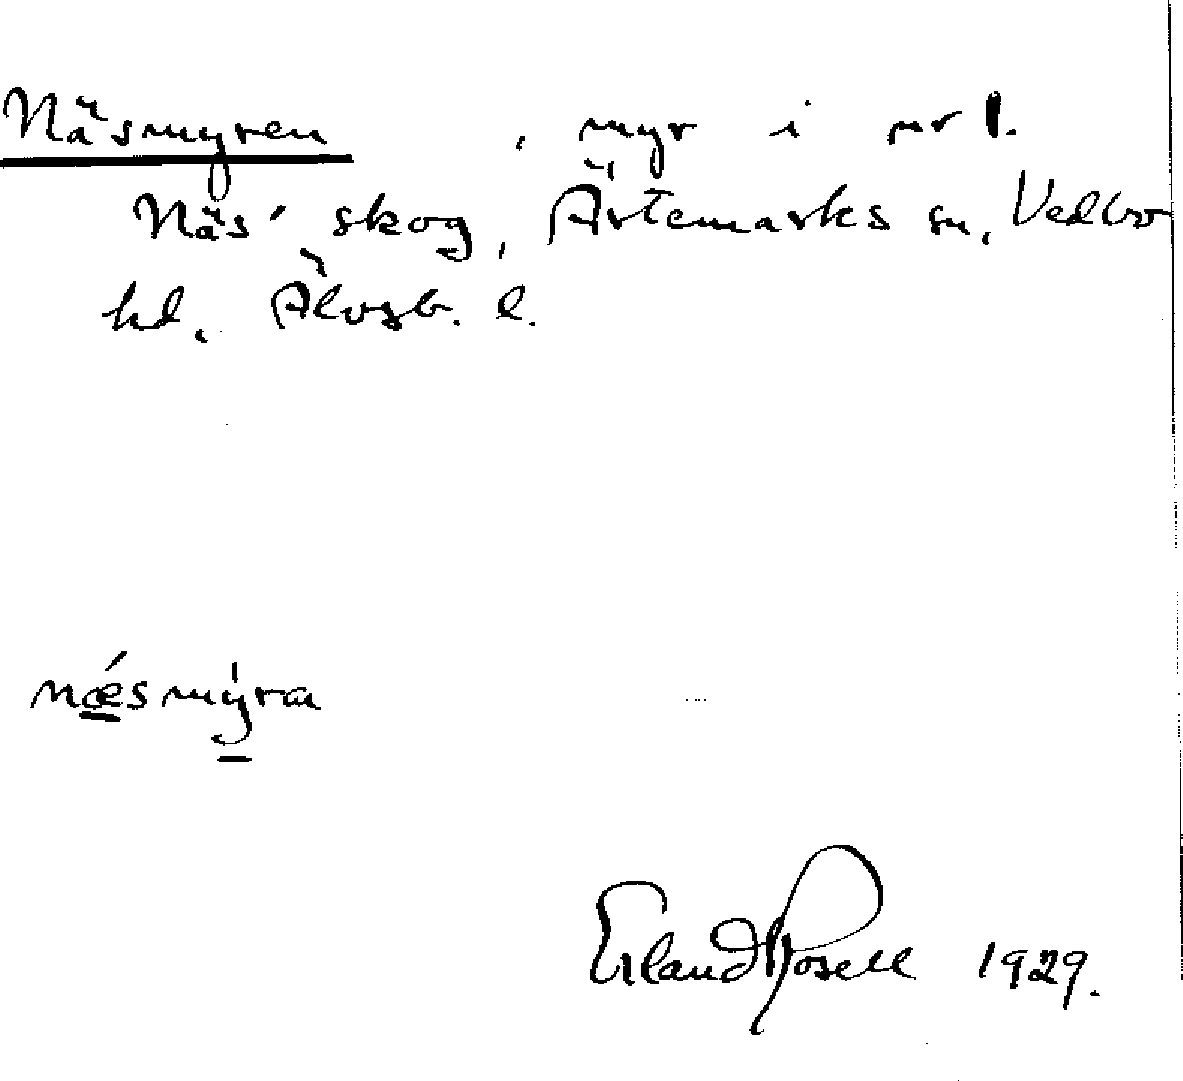 Näsmyren , myr i nr 1.
Näs' skog, Ärtemarks sn, Vedbo
hd, Älvsb. l.
nǽsmýra
Erland Rosell 1929.